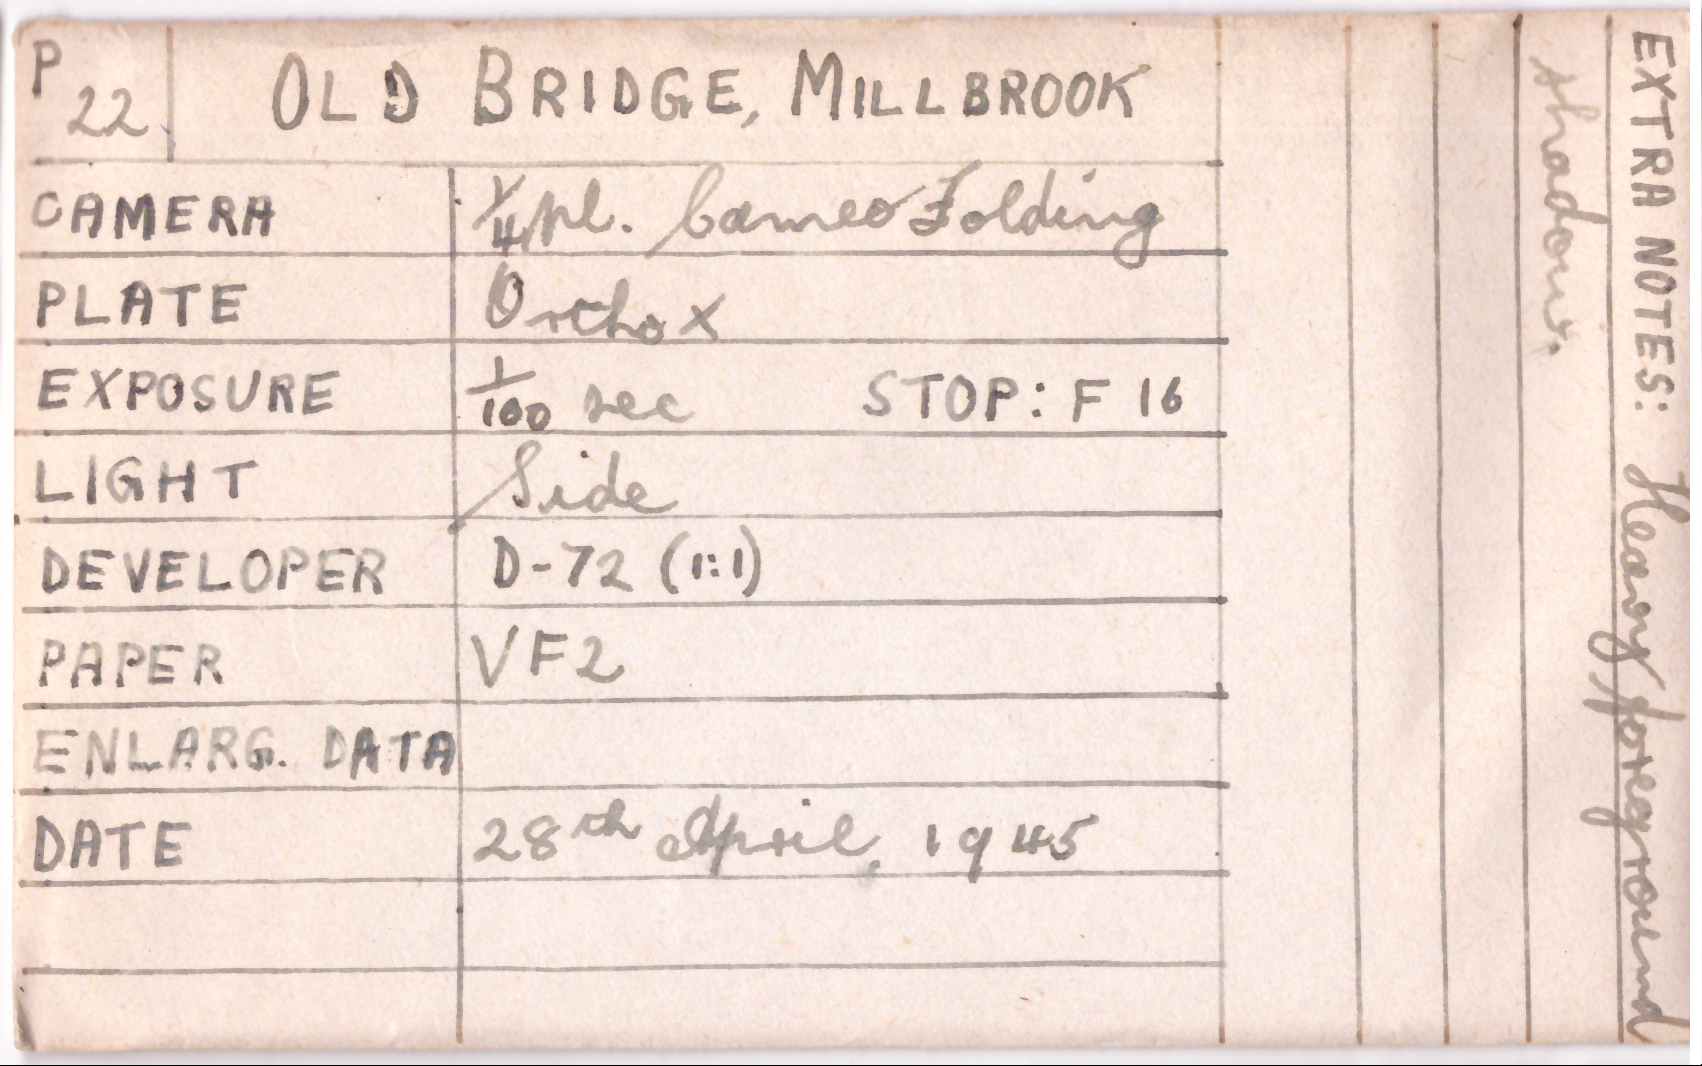 P 22 OLD BRIDGE, MILLBROOK
CAMERA 1/4 pl. Cameo Folding
PLATE Ortho X
EXPOSURE 1/100 sec STOP: F 16
LIGHT Side
DEVELOPER D-72 (1:1)
PAPER VF2
ENLARG. DATA
DATE 28th April, 1945
EXTRA NOTES: Heavy foreground
shadow.